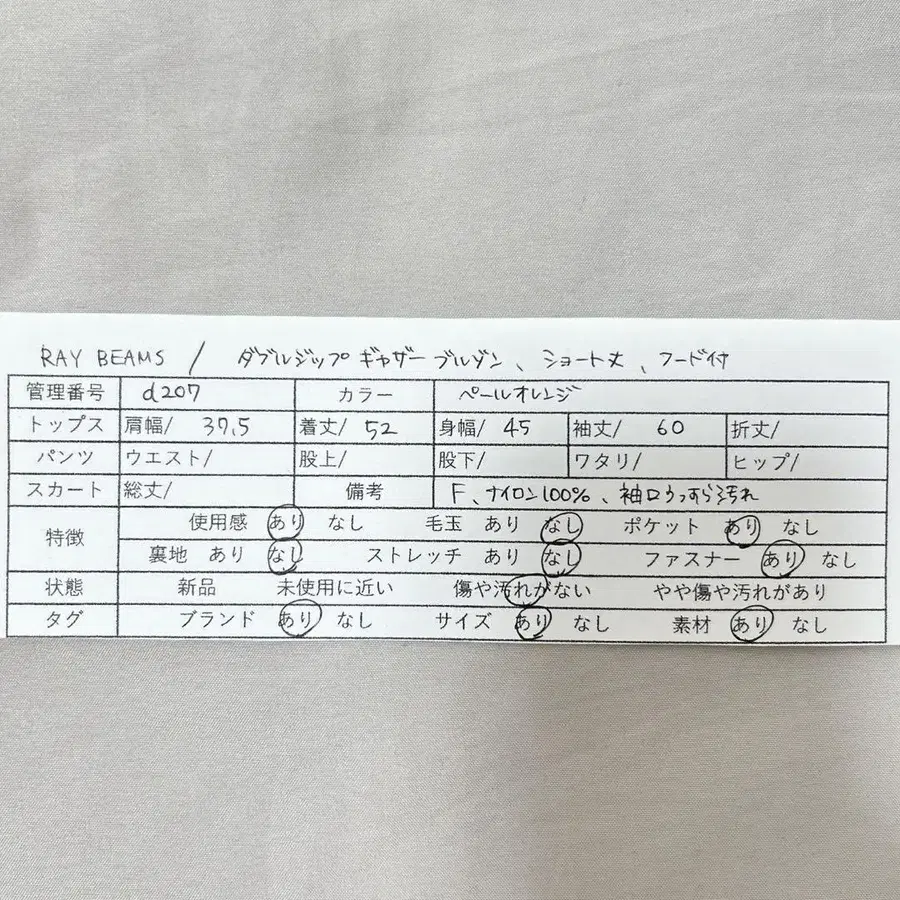 RAY BEAMS / ダブルジップ ギャザー ブルゾン、ショート丈、フード付
管理番号 d207 カラー ペールオレンジ
トップス 肩幅/ 37.5 着丈/ 52 身幅/ 45 袖丈/ 60 折丈/
パンツ ウエスト/ 股上/ 股下/ ワタリ/ ヒップ/
スカート 総丈/ 備考 F、ナイロン100%、袖口うっすら汚れ
特徴 使用感 あり なし 毛玉 あり なし ポケット あり なし
裏地 あり なし ストレッチ あり なし ファスナー あり なし
状態 新品 未使用に近い 傷や汚れがない やや傷や汚れがあり
タグ ブランド あり なし サイズ あり なし 素材 あり なし